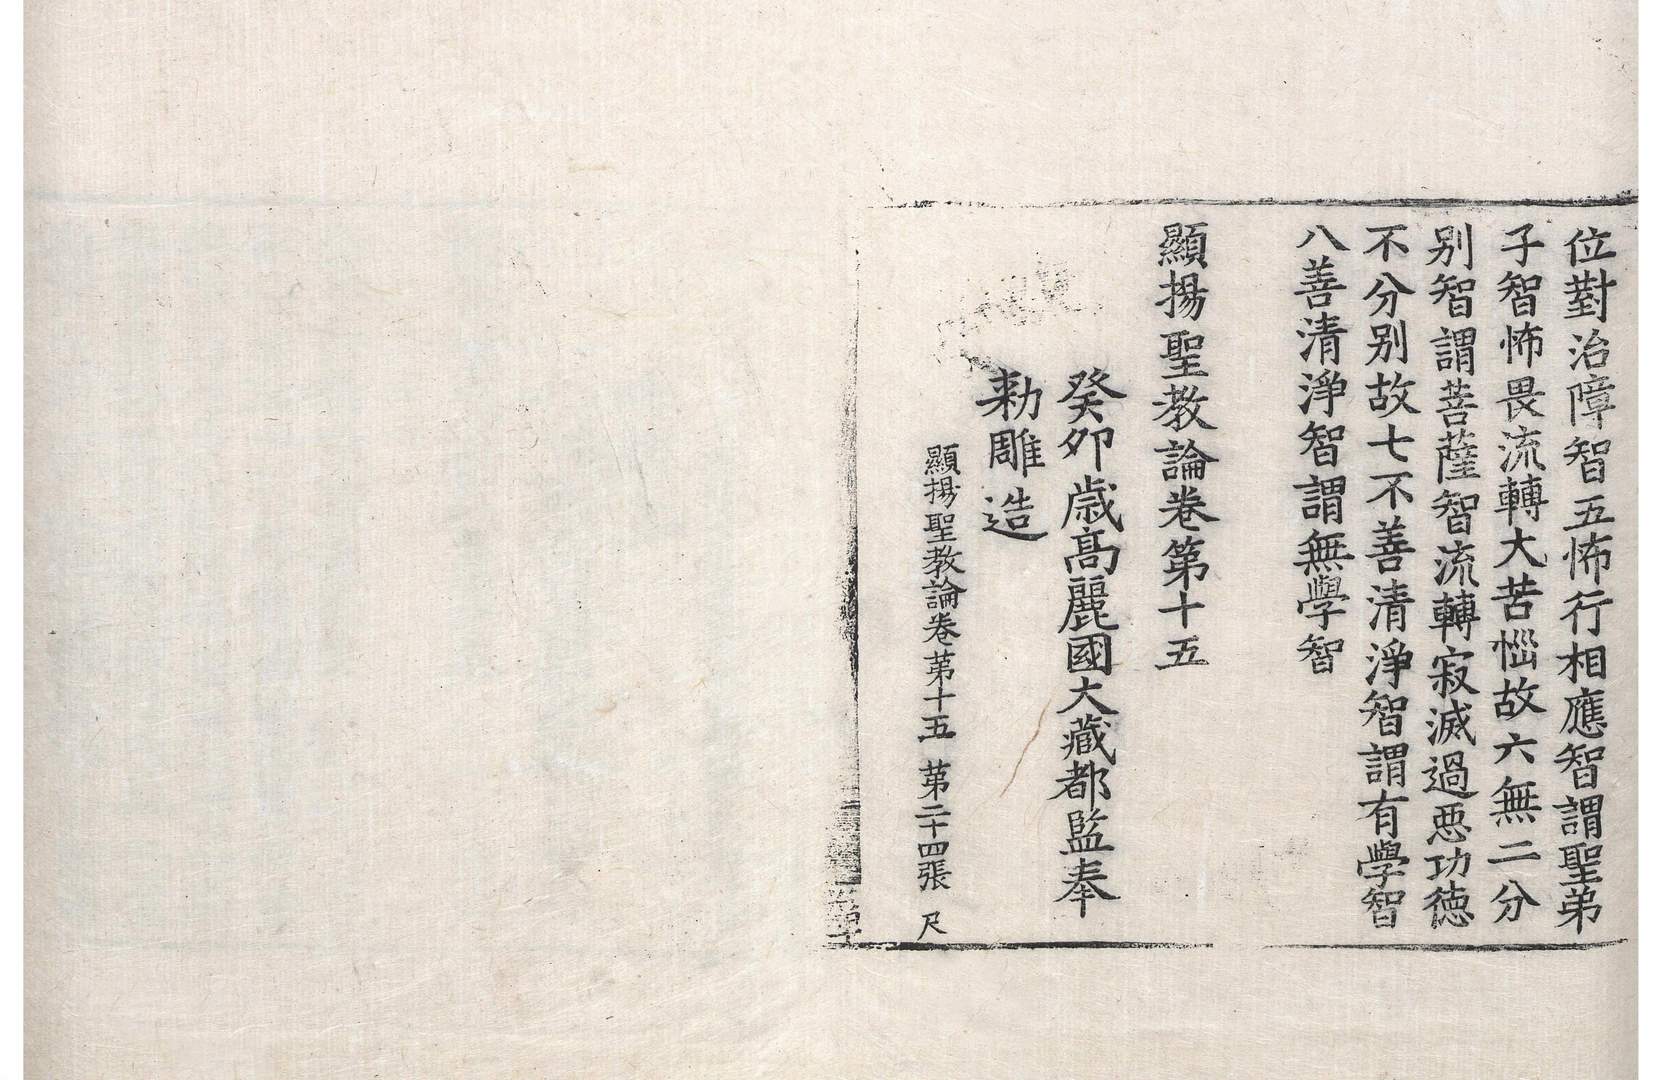 位對治障智五怖行相應智謂聖弟
子智怖畏流轉大苦惱故六無二分
别智謂菩薩智流轉寂滅過惡功徳
不分别故七不善清淨智謂有學智
八善清淨智謂無學智
顯揚聖教論卷第十五
癸卯歳髙麗國大藏都監奉
勑雕造
顯揚聖教論卷第十五 第二十四張 尺